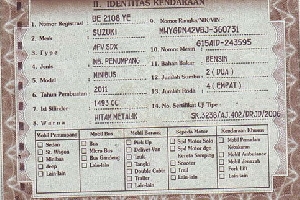 II. IDENTITAS KENDARAAN
1. Nomor Registrasi BE 2108 YE
2. Merk SUZUKI
3. Type APV SDX
4. Jenis MB. PENUMPANG
5. Model MINIBUS
6. Tahun Pembuatan 2011
7. Isi Silinder 1493 CC
8. Warna HITAM METALIK
9. Nomor Rangka/NIK/VIN
MHYGDN42VBJ-360731
10. Nomor Mesin G15AID-243595
11. Bahan Bakar BENSIN
12. Jumlah Sumbu 2 (DUA)
13. Jumlah Roda 4 (EMPAT)
14. No. Sertifikat Uji Tipe
SK.3236/AJ.402/DRJD/2006
Mobil Penumpang
Sedan
St. Wagon
Minibus
Jeep
Lain-lain
Mobil Bus
Bus
Micro Bus
Bus Gandeng
Lain-lain
Mobil Barang
Pick Up
Delivet Van
Truk
Tangki
Double Cabin
Trailer
Lain-lain
Sepeda Motor
Spd Motor Solo
Spd Motor dgn
Kereta Samping
Scooter
Lain-lain
Kendaraan Khusus
Mobil Pemadam
Kebakaran
Mobil Ambulance
Mobil Jenazah
Fork Lift
Lain-lain